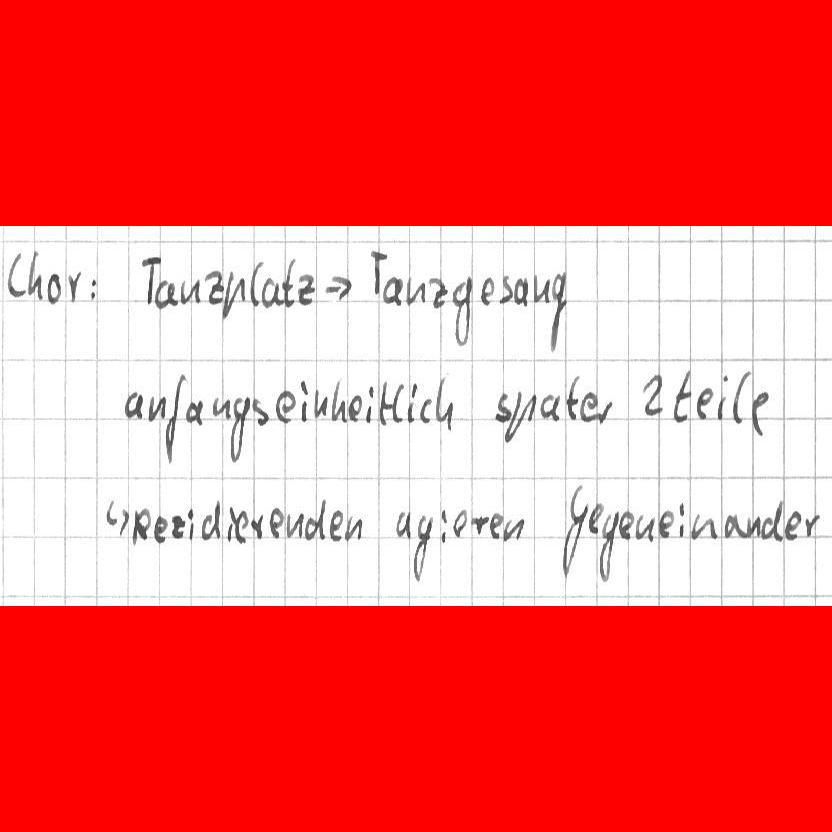 Chor: Tanzplatz → Tanzgesang
anfangseinheitlich spater 2 teile
↳ Rezidierenden agieren Gegeneinander